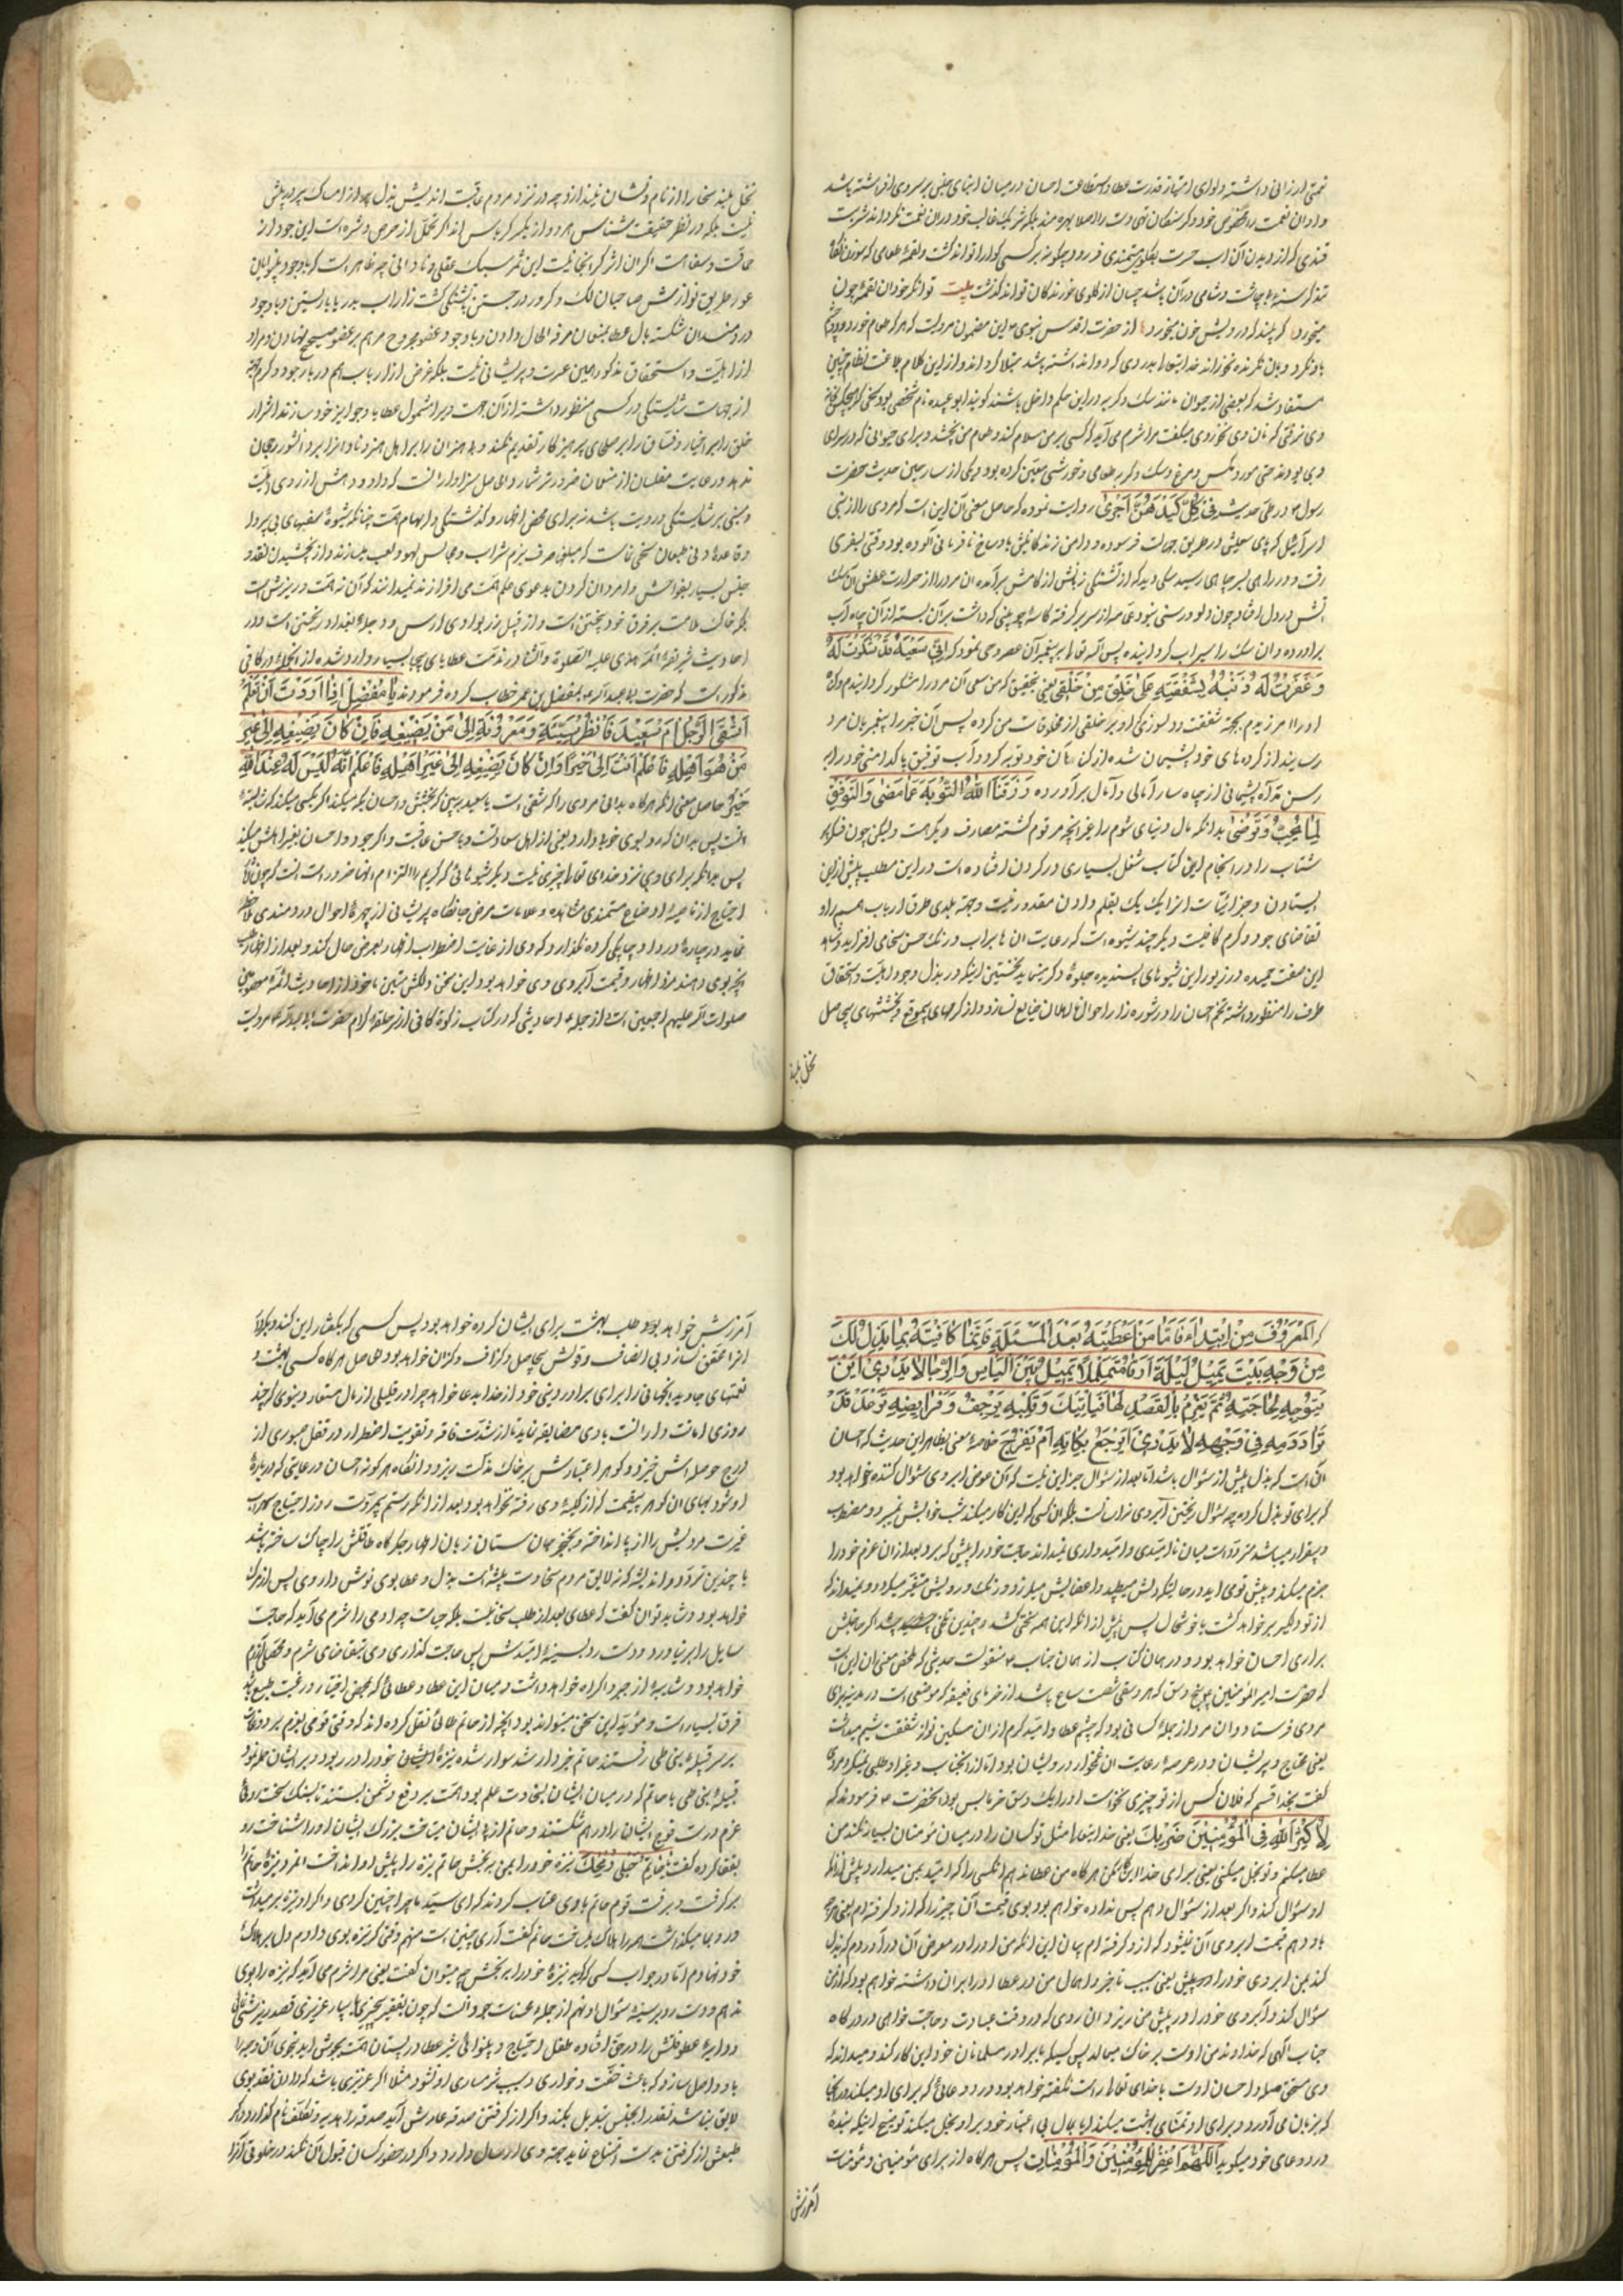 نعمتی ارزانی داشته و لوای امتیاز قدرت عطا و استطاعت احسان در میان ابنای جنس بر سر وی افراشته باشد
و او آن نعمت را مخصوص خود و کرسنکان تهی دست را اصلا بهره مند بلکه شریک غالب خود در ان نعمت نکرداند شربت
قندی که از دیدن آن اب حسرت بکلوی مستمندی فرو رود چکونه بر کسی کوارا تواند کشت و لقمهٔ طعامی که
کرسنهٔ بی چاشت و شامی در آن باشد چسان از کلوی خورندکان تواند کذشت بیت توانکر خود آن لقمه چون
میخورد که بیند که درویش خون میخورد از حضرت اقدس نبوی این مضمون مرویست که هر که طعام خورد و دو چشم
باو نکرد و بان نکرنده نخوراند خدا یتعالی بدردی که دوا نداشته باشد مبتلا کرداند و از این کلام بلاغت نظام چنین
مستفاد شد که بعضی از حیوان مانند سک و کربه در این حکم داخل باشند کویند ابو عبیده نام شخصی بود سخی که
وی نرفتی که نان وی نخوردی میکفت مرا شرم می آید که کسی بر من سلام کند و طعام من نچشد و برای حیوانی که در سرای
وی بودند حتی مور و مکس و مرغ و سک و کربه طعامی و خورشی معین کرده بود و یکی از سارحین حدیث حضرت
رسول در طی حدیث شریف فی کل کبد لهن اجری روایت نموده که حاصل معنی آن این است که مردی را از بنی
اسرآییل که پای سعیش در طریق جهالت فرسوده و دامن زندکانیش باوساخ نافرمانی آلوده بود وقتی بسفری
رفت و در راهی بسر چاهی رسید سکی دید که از تشنکی زبانش از کامش برآمده ان مرد را از حرارت عطش آن سک
آتش در دل افتاد چون دلو و رسنی نبود عمامه از سر برکرفته کاسهٔ چوبینی که داشت بر آن بسته از آن چاه آب
برآورده و ان سک را سیراب کردانیده پس اله تعالی بر پیغمبر آن عصر وحی نمود که انی سعیه قد شکرت له
و غفرت له ذنبه لشفقته علی خلق من خلقی یعنی بتحقیق که من سعی آن مرد را مشکور کردانیدم و کناه
او را امرزیدم بجهة شفقت و دلسوزی که او بر خلقی از مخلوقات من کرده پس آن خبر را پیغمبر بان مرد
رسانیده از کرده های خود پشیمان شده از کناهان خود توبه کرد و آب توفیق پاکدامنی خود را به
رسن مد آه پشیمانی از چاه سار آمالی و آمال برآورده و رزقنا الله التوبة عما مضی و التوفیق
لما یحب و یرضی بدانکه مال دنیای شوم را بغیر آنچه مرقوم کشته مصارف دیکر هست ولیکن چون فکر
شتاب را در انجام این کتاب شغل بسیاری در کردن افتاده است در این مطلب پیش از این
ایستادن و جزائیات انرا یک یک بقلم دادن مقدور نیست و جهة بلدی طرق ارباب همم را و
تقاضای جود و کرم کافیست دیکر چند شیوه است که رعایت ان ها بر آب و رنک حسن سخا می افزاید و شاهد
این صفت حمیده در زیور این شیوهای پسندیده جلوهٔ دکر مینماید نخستین اینکه در بذل وجود اهلیت و استحقاق
طرف را منظور داشته تخم احسان را در شوره زار احوال نااهلان ضایع نسازد و از کرمهای بیموقع و بخششهای بیحاصل
نخل بلند
نخل بلند سخا را از نام و نشان نیندازد چه در نزد مردم عاقبت اندیش بذل از امساک بهتر
نیست بلکه در نظر حقیقت شناس هر دو از یکدکر کرباس اند اکر بخل از حرص و شره است این جود از
حماقت و سفاهت اکر آن اثر کرانجانیست این ثمر سبک عقلی و نادانی چه ظاهر است که با وجود
عور طریق نوازش صاحبان لک و کرور در جستن و با وجود
دردمندان شکسته بال عطا بمنعمان مرفه الحال دادن و با وجود عضو مجروح مرهم بر عضو صحیح نهادن و مراد
از اهلیت و استحقاق مذکور همین عسرت و پریشانی نیست بلکه غرض از آن ارباب همم در باب جود و کرم
از جهات شایستکی در کسی منظور داشته از آن جهت ویرا شمول عطایا و جوایز خود سازند اشرار
خلق را بر اخیار و فساق را بر صلحای پرهیزکار تقدیم نکنند و بی هنران را بر اهل هنر و ناداران را بر دانشور رجحان
ندهد و رعایت مفلسان از منعمان ضرورتر شمارد و الحاصل سزاوار انست که داد و دهش از روی نیت
و مبنی بر شایستکی و رویت باشد نه برای محض اظهار و کذشتکی و ابهام همت چنانکه شیوهٔ سفیهای بی پروا
و قاعدهٔ دنی طبعان سخی نماست که مبلغی صرف بزم شراب و مجالس لهو و لعب میسازند و از بخشیدن نقد و
جنس بسیار بفواحش و امردان کردن بدعوی علم همت می افرازند نمیدانند که آن نه همت و ریزش است
بلکه خاک ملامت بر فرق خود بیختن است و از قبیل زر بوادی ارس و دجلهٔ بغداد ریختن است و در
احادیث شریفهٔ ائمهٔ هدی علیه الصلوة و الثنا در مذمت عطایای بیجا بسیار وارد شده از آنجمله در کافی
مذکور است که حضرت ابا عبدالله بمفضل بن عمر خطاب کرده فرمودند یا مفضل اذا اردت ان تعلم
اشقی الرجل ام سعید فانظر سیبه و معروفه الی من یصنعه فان کان یصنعه الی غیر
من هو اهله فاعلم انه الی خیر و ان کان یصنعه الی غیر اهله فاعلم انه لیس له عند الله
خیر حاصل معنی آنکه هرکاه بدانی مردی را که شقی است یا سعید ببین که بخشش و احسان بکه میکند اکر بکسی میکند که شایستهٔ
انست پس بدان که رو بسوی خیر دارد یعنی از اهل سعادتست و یا حسن عاقبت و اکر جود و احسان بغیر اهلش میکند
پس بدانکه برای وی نزد خدای تعالی خیری نیست دیکر شیوهائی که کریم را التزام انها ضرور است انست که چون
احتیاج از ناصیهٔ اوضاع مستمندی مشاهده و علامات مرض جانکاه پریشانی از چهرهٔ احوال دردمندی ملاحظه
نماید در چارهٔ درد او چابکی کرده نکذارد که وی از غایت اضطراب اظهار بعرض حال کند و بعد از اظهار طلب
هر چه بوی دهند مزد اظهار و قیمت آبروی وی خواهد بود و این سخن دلکش متین ماخوذ از احادیث ائمهٔ معصومین
صلوات الله علیهم اجمعین است از جمله احادیثی که در کتاب زکوة کافی از سر حلقهٔ کرام حضرت ابا عبدالله مرویست
که المعروف من ابتداء فاما من اعطیته بعد المسئلة فانما کافیته بما بذل لک
من وجهه یبیت یمیل لیلة ارقا متململا یمیل بین الیاس و الرجا لا یدری این
یتوجه لحاجته ثم یعزم بالقصد لها فیاتیک و قلبه یرجف و فرائصه ترعد قد
تری دمه فی وجهه لا یدری ایرجع بکابة ام بفرح خلاصهٔ معنی بظاهر این حدیث که احسان
آن است که بذل پیش از سؤال باشد اما بعد از سؤال جز این نیست که آن عوض ابروی سؤال کننده خواهد بود
که برای تو بذل کرده چه سؤال ریختن آبروی نزد انست بلکه آن کسی که این کار میکند شب خوابش نمیبرد و مضطرب
و بیقرار میباشد متردد است میان ناامیدی و امیدواری نمیداند حاجت خود را پیش که برد بعد از ان عزم خود را
جزم میکند و پیش تو می اید در حالتی که دلش میطپد و اعضایش میلرزد و رنک و رویش متغیر میکردد و نمیداند که
از تو دلکیر بر خواهد کشت یا خوشحال پس پیش از آنکه این همه سختی کشد و چندین تلخی چشد اکر حاجتش
برآری احسان خواهد بود و در همان کتاب از همان جناب منقولست حدیثی که ملخص معنی ان این است
که حضرت امیرالمؤمنین پنج وسق که هر وسقی شصت صاع باشد از خرمای نغیبغه که موضعی است در مدینه برای
مردی فرستاد و ان مرد از جملهٔ کسانی بود که چشم عطا و امید کرم از ان مسکین نواز شفقت شیم میداشت
یعنی محتاج و پریشان و در عرصهٔ رعایت ان غمخوار درویشان بود اما از انجناب و غیر او طلبی نمیکرد مردی
کفت بخدا قسم که فلان کس از تو چیزی نخواست او را یک وسق خرما بس بود آنحضرت فرمودند که
لا کثر الله فی المؤمنین ضربک یعنی خدایتعالی مثل تو کسان را در میان مؤمنان بسیار نکند من
عطا میکنم و تو بخل میکنی یعنی برای خدا این هرکاه من عطا ندهم انکسی را که امید بمن میدارد پیش از آنکه
او سؤال کند و اکر بعد از سؤال دهم پس نداده خواهم بود بوی قیمت آن چیز را که از او کرفته ام یعنی هر چه
باو دهم قیمت ابروی آن میشود که از او کرفته ام بیان این آنکه من او را در معرض آن درآوردم که بذل
کند بمن ابروی خود را یعنی بسبب تاخیر و اهمال من در عطا او را بران داشته خواهم بود که از من
سؤال کند و آبروی خود را در پیش من ریزد ان روی که در وقت عبادت و حاجت خواهی در درکاه
جناب الهی که خداوند من و اوست بر خاک میمالد پس کسیکه با برادر مسلمانان خود این کار کند و میداند که
وی مستحق صله و احسان اوست با خدای تعالی راست نکفته خواهد بود در دعائی که برای او میکند در
که بزبان می آورد و برای او تمنای بهشت میکند اما بمال بی اعتبار خود بر او بخل میکند توضیح اینکه بندهٔ
در دعای خود میکوید اللهم اغفر للمؤمنین و المؤمنات پس هرکاه از برای مؤمنین و مؤمنات
آمرزش
آمرزش خواهد بود و طلب بهشت برای ایشان کرده خواهد بود پس کسی که بکفتار این کند و بکردار
انرا محقق نسازد بی انصاف و قولش بیحاصل و کزاف خواهد بود حاصل هرکاه کسی بهشت و
نعمتهای جاوید آنجهانی را برای برادر دینی خود از خدا بدعا خواهد چرا در قلیلی از مال مستعار دنیوی که چند
روزی امانت دار انست با وی مضایقه نماید تا از شدت فاقه و تقویت اضطرار در قفل صبوری از
درج حوصله اش خیزد و کوهر اعتبارش بر خاک مذلت ریزد و انکاه هر کونه احسان و رعایتی که دربارهٔ
او شود بهای ان کوهر بیقیمت که از کیسهٔ وی رفته نخواهد بود بعد از انکه رستم مروت روز احتیاج سهراب
غیرت مردیش را از پا انداخته و بخنجر جان ستان زبان اظهار جکرکاه طاقتش را چاک ساخته باشد
با چندین تردد و اندیشه که نه لایق مردم سخاوت پیشه است بذل و عطا بوی نوش داروی پس از مرک
خواهد بود و شاید توان کفت که عطای بعد از طلب سخا نیست بلکه حیاست چه ادمی را شرم می آید که حاجت
سایل را بر نیاورد و دست رد بر سینهٔ امیدش پس حاجت کذاری وی بتقاضای شرم و
خواهد بود و شایبهٔ از جبر و اکراه خواهد داشت و میان این عطا و عطائی که بمحض اختیار و رغبت طبع باشد
فرق بسیار است و مؤید این سخن میتواند بود آنچه از حاتم طائی نقل کرده اند که وقتی قومی بعزم
بر سر قبیلهٔ بنی طی رفتند حاتم خبردار شد سوار شده نیزهٔ خود را در ربود و بر ایشان حمله نمود
قبیلهٔ بنی طی با حاتم که در میان ایشان بسخاوت علم بود همت بر دفع دشمن بستند تا بسنک سخت روئی
عزم درست فوج ایشان را در هم شکستند و حاتم از پی ایشان میتاخت بزرک ایشان او را شناخت رو
بقفا کرده کفت یا حاتم هب لی رمحک نیزه خود را بمن ببخش حاتم نیزه را پیش او انداخت ان مرد نیزهٔ حاتم را
برکرفت و برفت قوم حاتم با وی عتاب کردند که ای سید ما چرا چنین کردی و اکر او نیزه بر میداشت
و رو بما میکذاشت همه را هلاک میساخت حاتم کفت آری چنین است منهم وقتی که نیزه بوی دادم دل بر هلاک
خود نهادم اما در جواب کسی که کوید نیزهٔ خود را بمن بخش چه میتوان کفت یعنی مرا شرم می آید که نیزه را بوی
ندهم و دست رد بر سینهٔ سؤال او نهم از جمله محسنات جود انست که چون بفقیر
و دایهٔ عطوفتش را در حق افتاده طفل احتیاج و بینوائی شیر عطا در پستان همت بجوش اید بنحوی آن وجه را
باو واصل سازد که باعث خفت و خواری و سبب شرمساری او نشود مثلا اکر عزیزی باشد که دادن نقد بوی
لایق نباشد نقد را بجنس تبدیل بکند و اکر از کرفتن صدقه عارش آید صدقه را هدیه و تکلف نام کذارد و اکر
طبعش از کرفتن بدست امتناع نماید بجهة وی ارسال دارد و اکر در حضور کسان قبول آن نکند در خلوتی آنرا